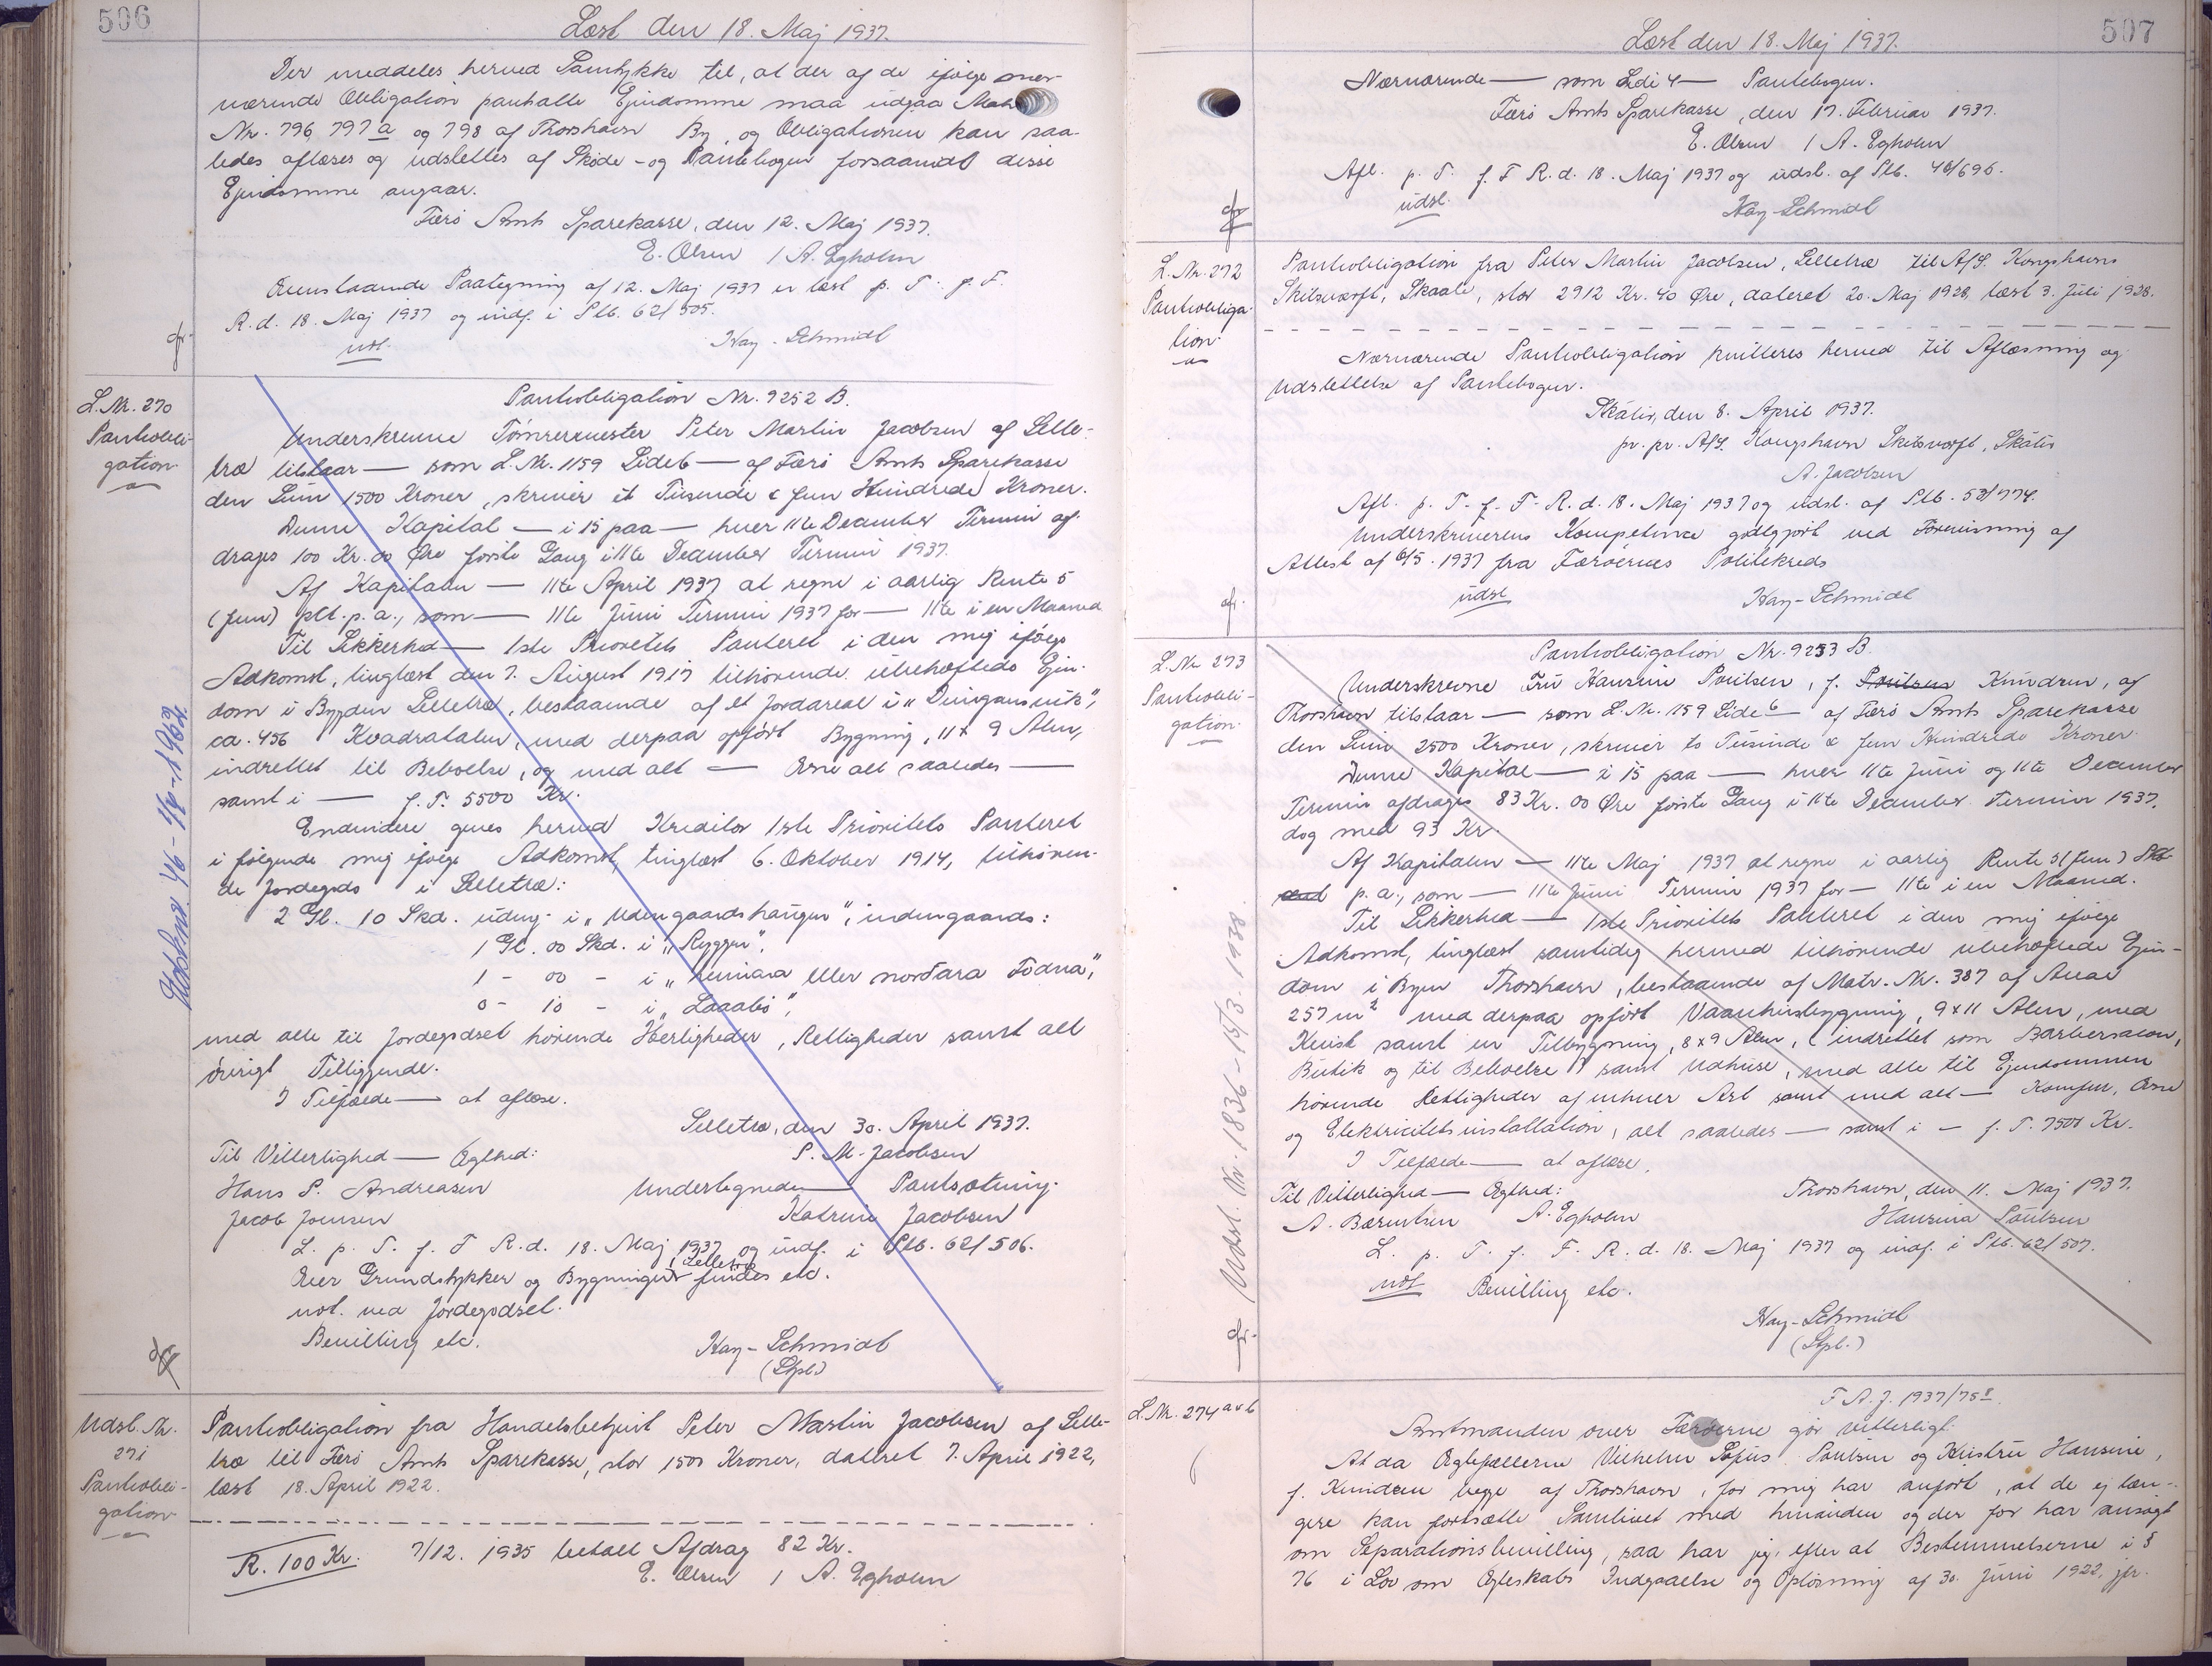 506
Læst den 18. Maj 1937.
Der meddeles herved Samtykke til, at der af de ifølge over-
nærværende Obligation pantsatte Ejendomme maa udgaa Matr.
Nr. 796, 797 a og 798 af Thorshavn By, og Obligationen kan saa-
ledes aflæses og udslettes af Skøde- og Pantebogen forsaavidt disse
Ejendomme angaar.
Færø Amts Sparekasse, den 12. Maj 1937.
E. Olsen / A. Egholm
Ovenstaaende Paategning af 12. Maj 1937 er læst p. T. f. F.
R. d. 18. Maj 1937 og indf. i Ptb. 62/505.
not. Kay-Schmidt
L. Nr. 270
Pantobli-
gation
Pantobligation Nr. 9252 B.
Underskrevne Tømrermester Peter Martin Jacobsen af Selle-
træ tilstaar — som L. Nr. 1159 Side 6 — af Færø Amts Sparekasse
den Sum 1500 Kroner, skriver et Tusende & fem Hundrede Kroner.
Denne Kapital — i 15 paa — hver 11te December Termin af-
drages 100 Kr. 00 Øre første Gang i 11te December Termin 1937.
Af Kapitalen — 11te April 1937 at regne i aarlig Rente 5
(fem) pCt. p. a., som — 11te Juni Termin 1937 for — 11te i en Maaned
Til Sikkerhed — 1ste Prioritets Panteret i den mig ifølge
Adkomst, tinglæst den 7. August 1917 tilhørende ubehæftede Ejen-
dom i Bygden Selletræ, bestaaende af et Jordareal i
ca. 456 Kvadratalen, med derpaa opført Bygning, 11 x 9 Alen,
indrettet til Beboelse, og med alt — Ovne alt saaledes —
samt i — f. T. 5500 Kr.
Endvidere gives herved Kreditor 1ste Prioritets Panteret
i følgende mig ifølge Adkomst, tinglæst 6. Oktober 1914, tilhøren-
de Jordegods i Selletræ:
2 Gl. 10 Skd. udmg. i „Udengaardshaugen", indengaards:
1 Gl. 00 Skd. i „Ryggen",
1 - 00 - i „ eller norðara Tødna",
0 - 10 - i „
med alle til Jordegodset hørende Herligheder, Rettigheder samt alt
øvrigt Tilliggende.
I Tilfælde — at aflæse.
Selletræ, den 30. April 1937.
Til Vitterlighed — Ægthed: P. M. Jacobsen
Hans P. Andreasen Undertegnede — Pantsætning.
Jacob Joensen Katrine Jacobsen
L. p. T. f. F. R. d. 18. Maj 1937 og indf. i Ptb. 62/506.
Over Grundstykker og Bygninger i Selletræ findes etc.
not. ved Jordegodset.
Bevilling etc.
Kay-Schmidt
(Stpl.)
Udsl. Nr.
271
Pantobli-
gation
Pantobligation fra Handelsbetjent Peter Martin Jacobsen af Selle-
træ til Færø Amts Sparekasse, stor 1500 Kroner, dateret 7. April 1922,
læst 18. April 1922.
R. 100 Kr. 7/12. 1935 betalt Afdrag 82 Kr.
E. Olsen / A. Egholm
507
Læst den 18. Maj 1937.
Nærværende — som Side 4 — Pantebogen.
Færø Amts Sparekasse, den 17. Februar 1937.
E. Olsen / A. Egholm
Afl. p. T. f. F R. d. 18. Maj 1937 og udsl. af Ptb. 48/696.
udsl. Kay-Schmidt
L. Nr. 272
Pantobliga-
tion
Pantobligation fra Peter Martin Jacobsen, Selletræ til A/S. Kongshavns
Skibsværft, Skaale, stor 2912 Kr. 40 Øre, dateret 20. Maj 1928, læst 3. Juli 1928.
Nærværende Pantobligation kvitteres herved til Aflæsning og
Udslettelse af Pantebogen.
Skálir, den 8. April 1937.
pr. pr. A/S. Kongshavn Skibsværft, Skálir
A. Jacobsen
Afl. p. T. f. F. R. d. 18. Maj 1937 og udsl. af Ptb. 53/774.
Underskriverens Kompetence godtgjort ved Forevisning af
Attest af 6/5. 1937 fra Færøernes Politikreds
udsl Kay-Schmidt
L. Nr 273
Pantobli-
gation
Pantobligation Nr. 9253 B.
Underskrevne Fru Hansine Poulsen, f. Poulsen Knudsen, af
Thorshavn tilstaar — som L. Nr. 1159 Side 6 — af Færø Amts Sparekasse
den Sum 2500 Kroner, skriver to Tusinde & fem Hundrede Kroner.
Denne Kapital — i 15 paa — hver 11te Juni og 11te December
Termin afdrages 83 Kr. 00 Øre første Gang i 11te December Termin 1937,
dog med 93 Kr.
Af Kapitalen — 11te Maj 1937 at regne i aarlig Rente 5 (fem)
p. a., som — 11te Juni Termin 1937 for — 11te i en Maaned.
Til Sikkerhed — 1ste Prioritets Panteret i den mig ifølge
Adkomst, tinglæst samtidig hermed tilhørende ubehæftede Ejen-
dom i Byen Thorshavn, bestaaende af Matr. Nr. 387 af Areal
257 m² med derpaa opført Vaaningsbygning, 9 x 11 Alen, med
Kvist samt en Tilbygning, 8 x 9 Alen, (indrettet som Barbersalon,
Butik og til Beboelse) samt Udhuse, med alle til Ejendommen
hørende Rettigheder af enhver Art samt med alt — Komfur, Ovne
og Elektricitetsinstallation, alt saaledes — samt i — f. T. 7500 Kr.
I Tilfælde — at aflæse.
Til Vitterlighed — Ægthed: Thorshavn, den 11. Maj 1937.
A. Bærentsen A. Egholm Hansina Poulsen
L. p. T. f. F. R. d. 18. Maj 1937 og indf. i Ptb. 62/507.
not Bevilling etc.
Kay-Schmidt
(Stpl.)
Udsl. Nr. 1836 - 15/3. 1938.
L. Nr. 274 a & b
F. A. J. 1937/75
Amtmanden over Færøerne gør vitterligt:
At da Ægtefællerne Vilhelm Sofus Poulsen og Hustru Hansine,
f. Knudsen begge af Thorshavn, for mig har anført, at de ej læn-
gere kan fortsætte Samlivet med hinanden og der for har ansøgt
om Separationsbevilling, saa har jeg, efter at Bestemmelserne i §
76 i Lov om Ægteskabs Indgaaelse og Opløsning af 30. Juni 1922, jfr.